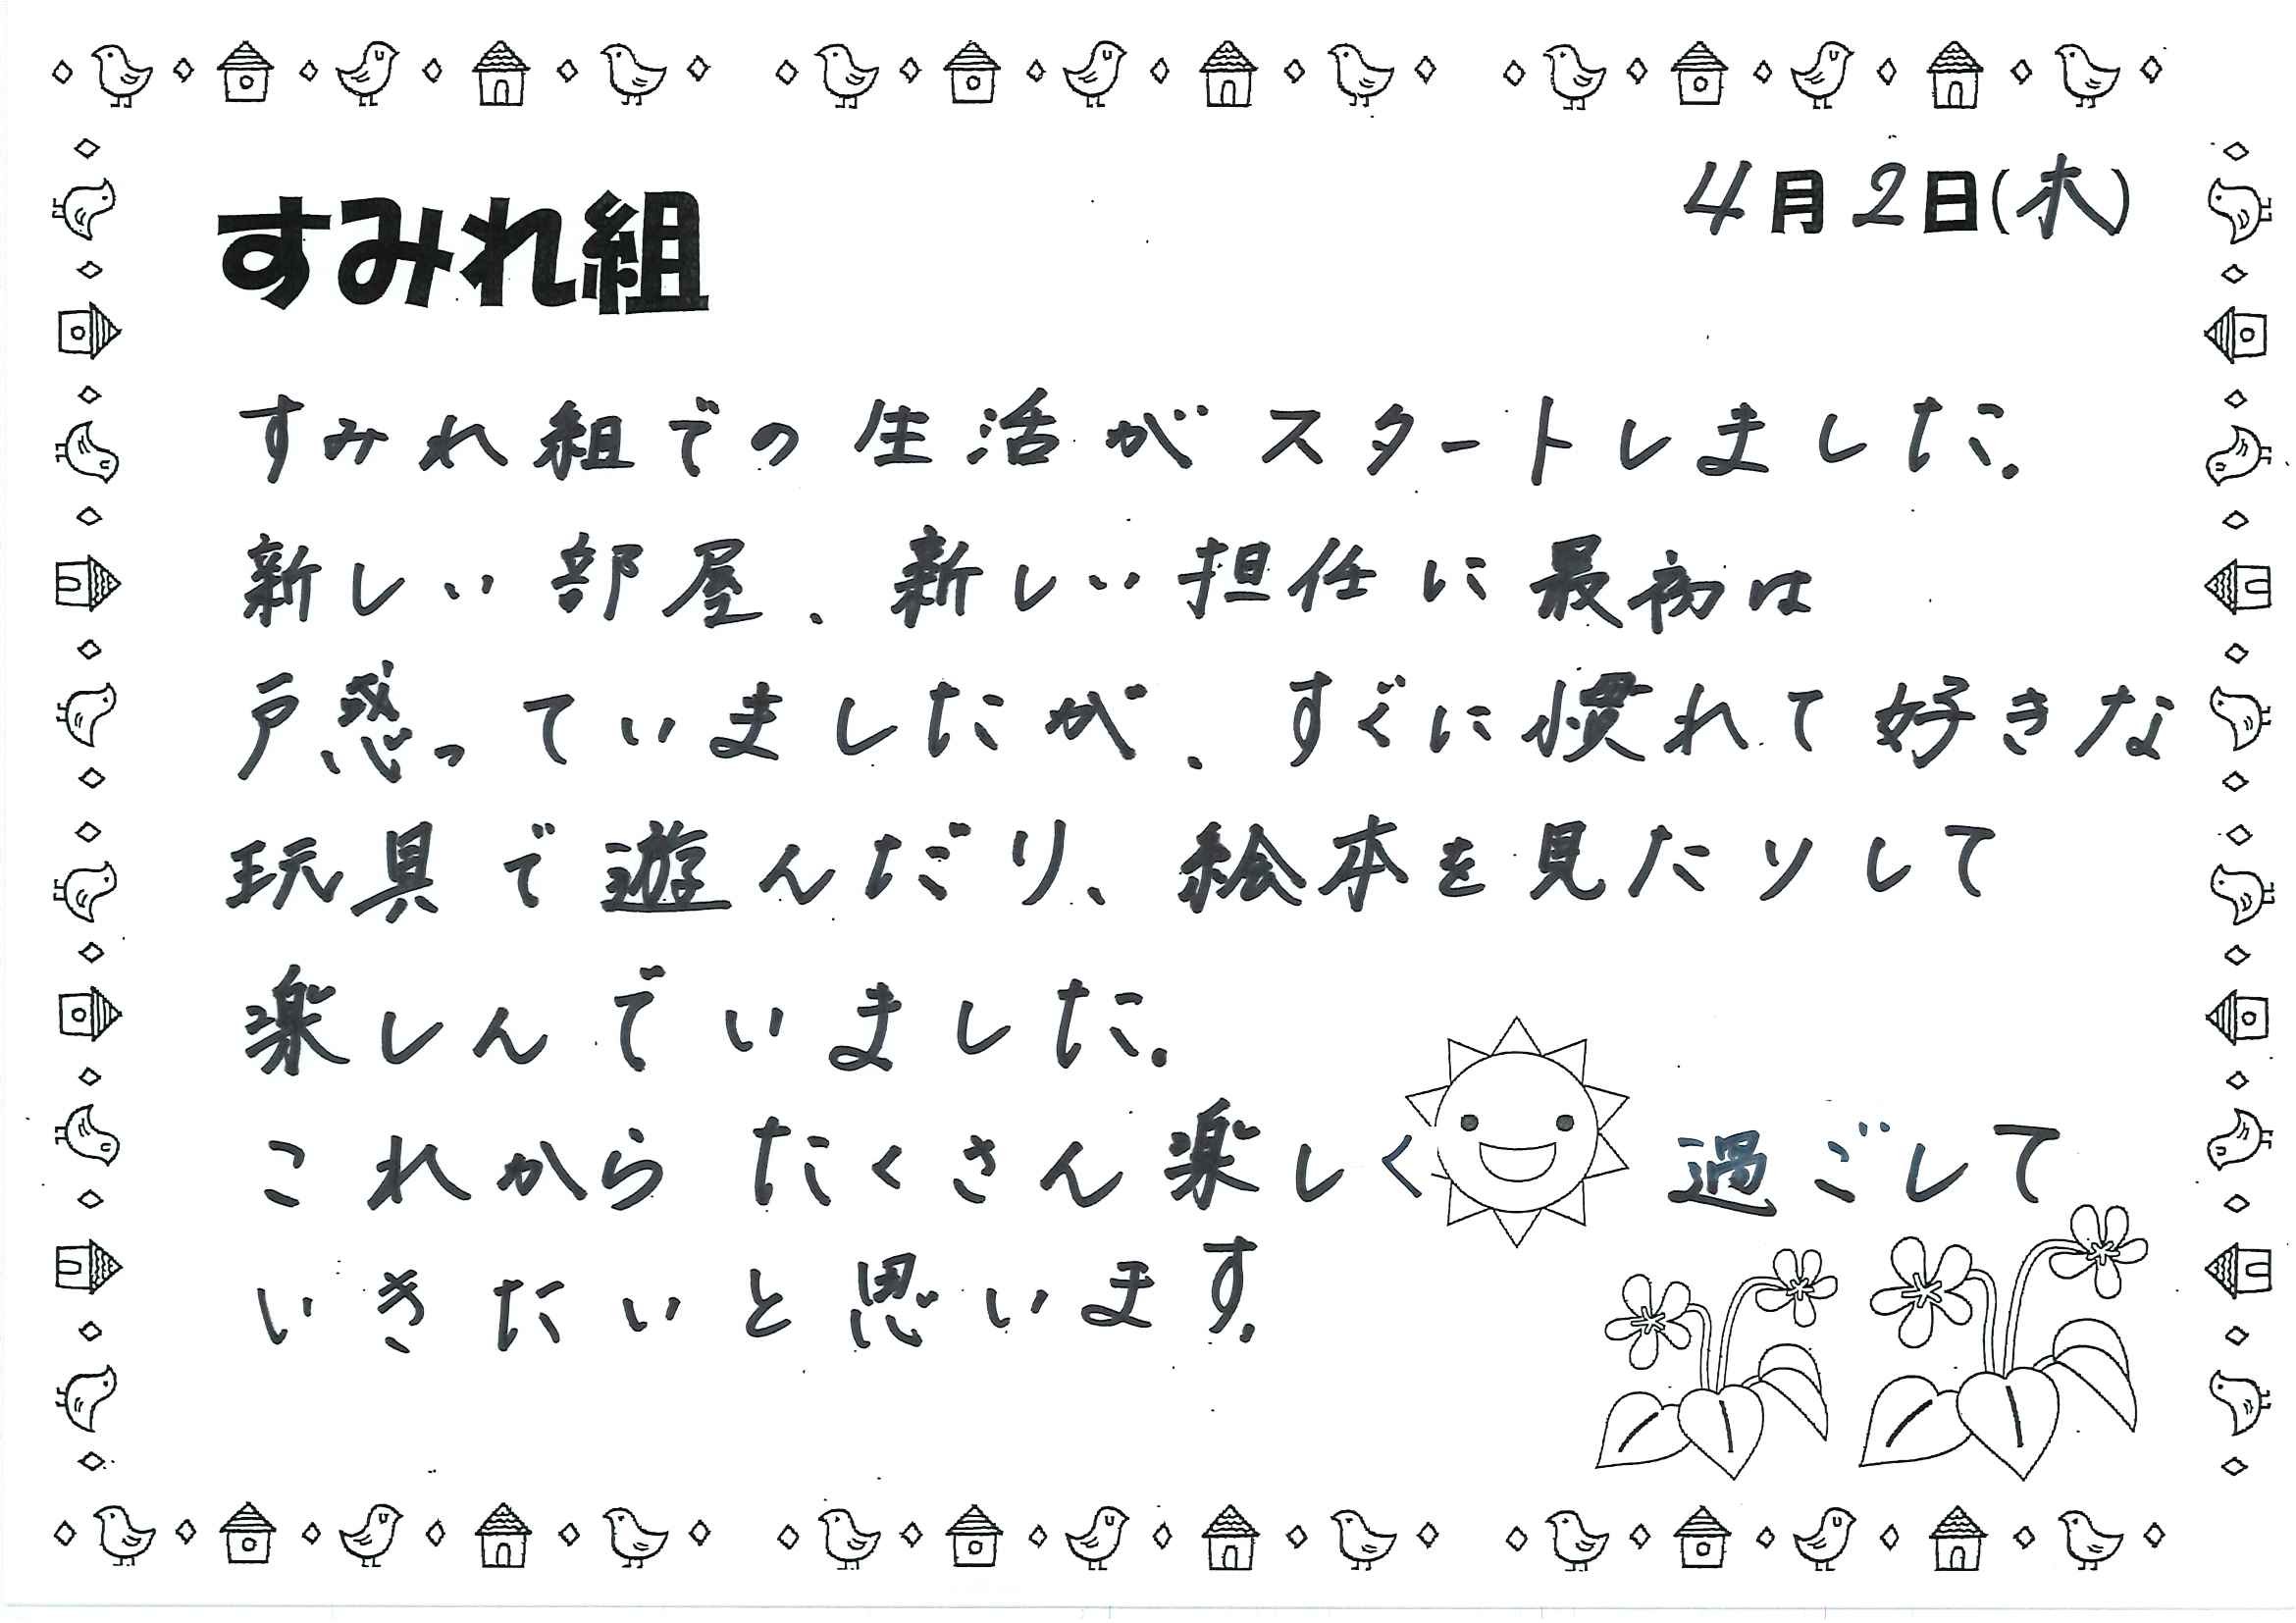 4月2日(木)
すみれ組
すみれ組での生活がスタートしました。
新しい部屋、新しい担任に最初は
戸惑っていましたが、すぐに慣れて好きな
玩具で遊んだり、絵本を見たりして
楽しんでいました。
これからたくさん楽しく過ごして
いきたいと思います。